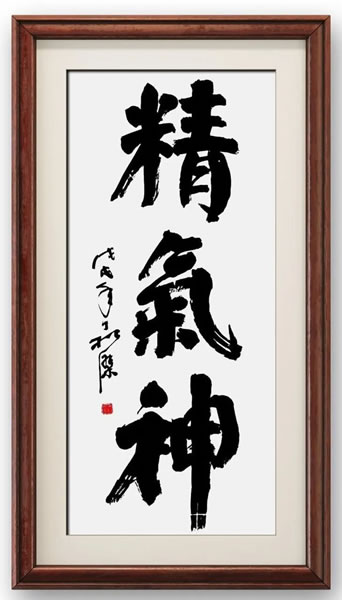 精氣神
戊戌年